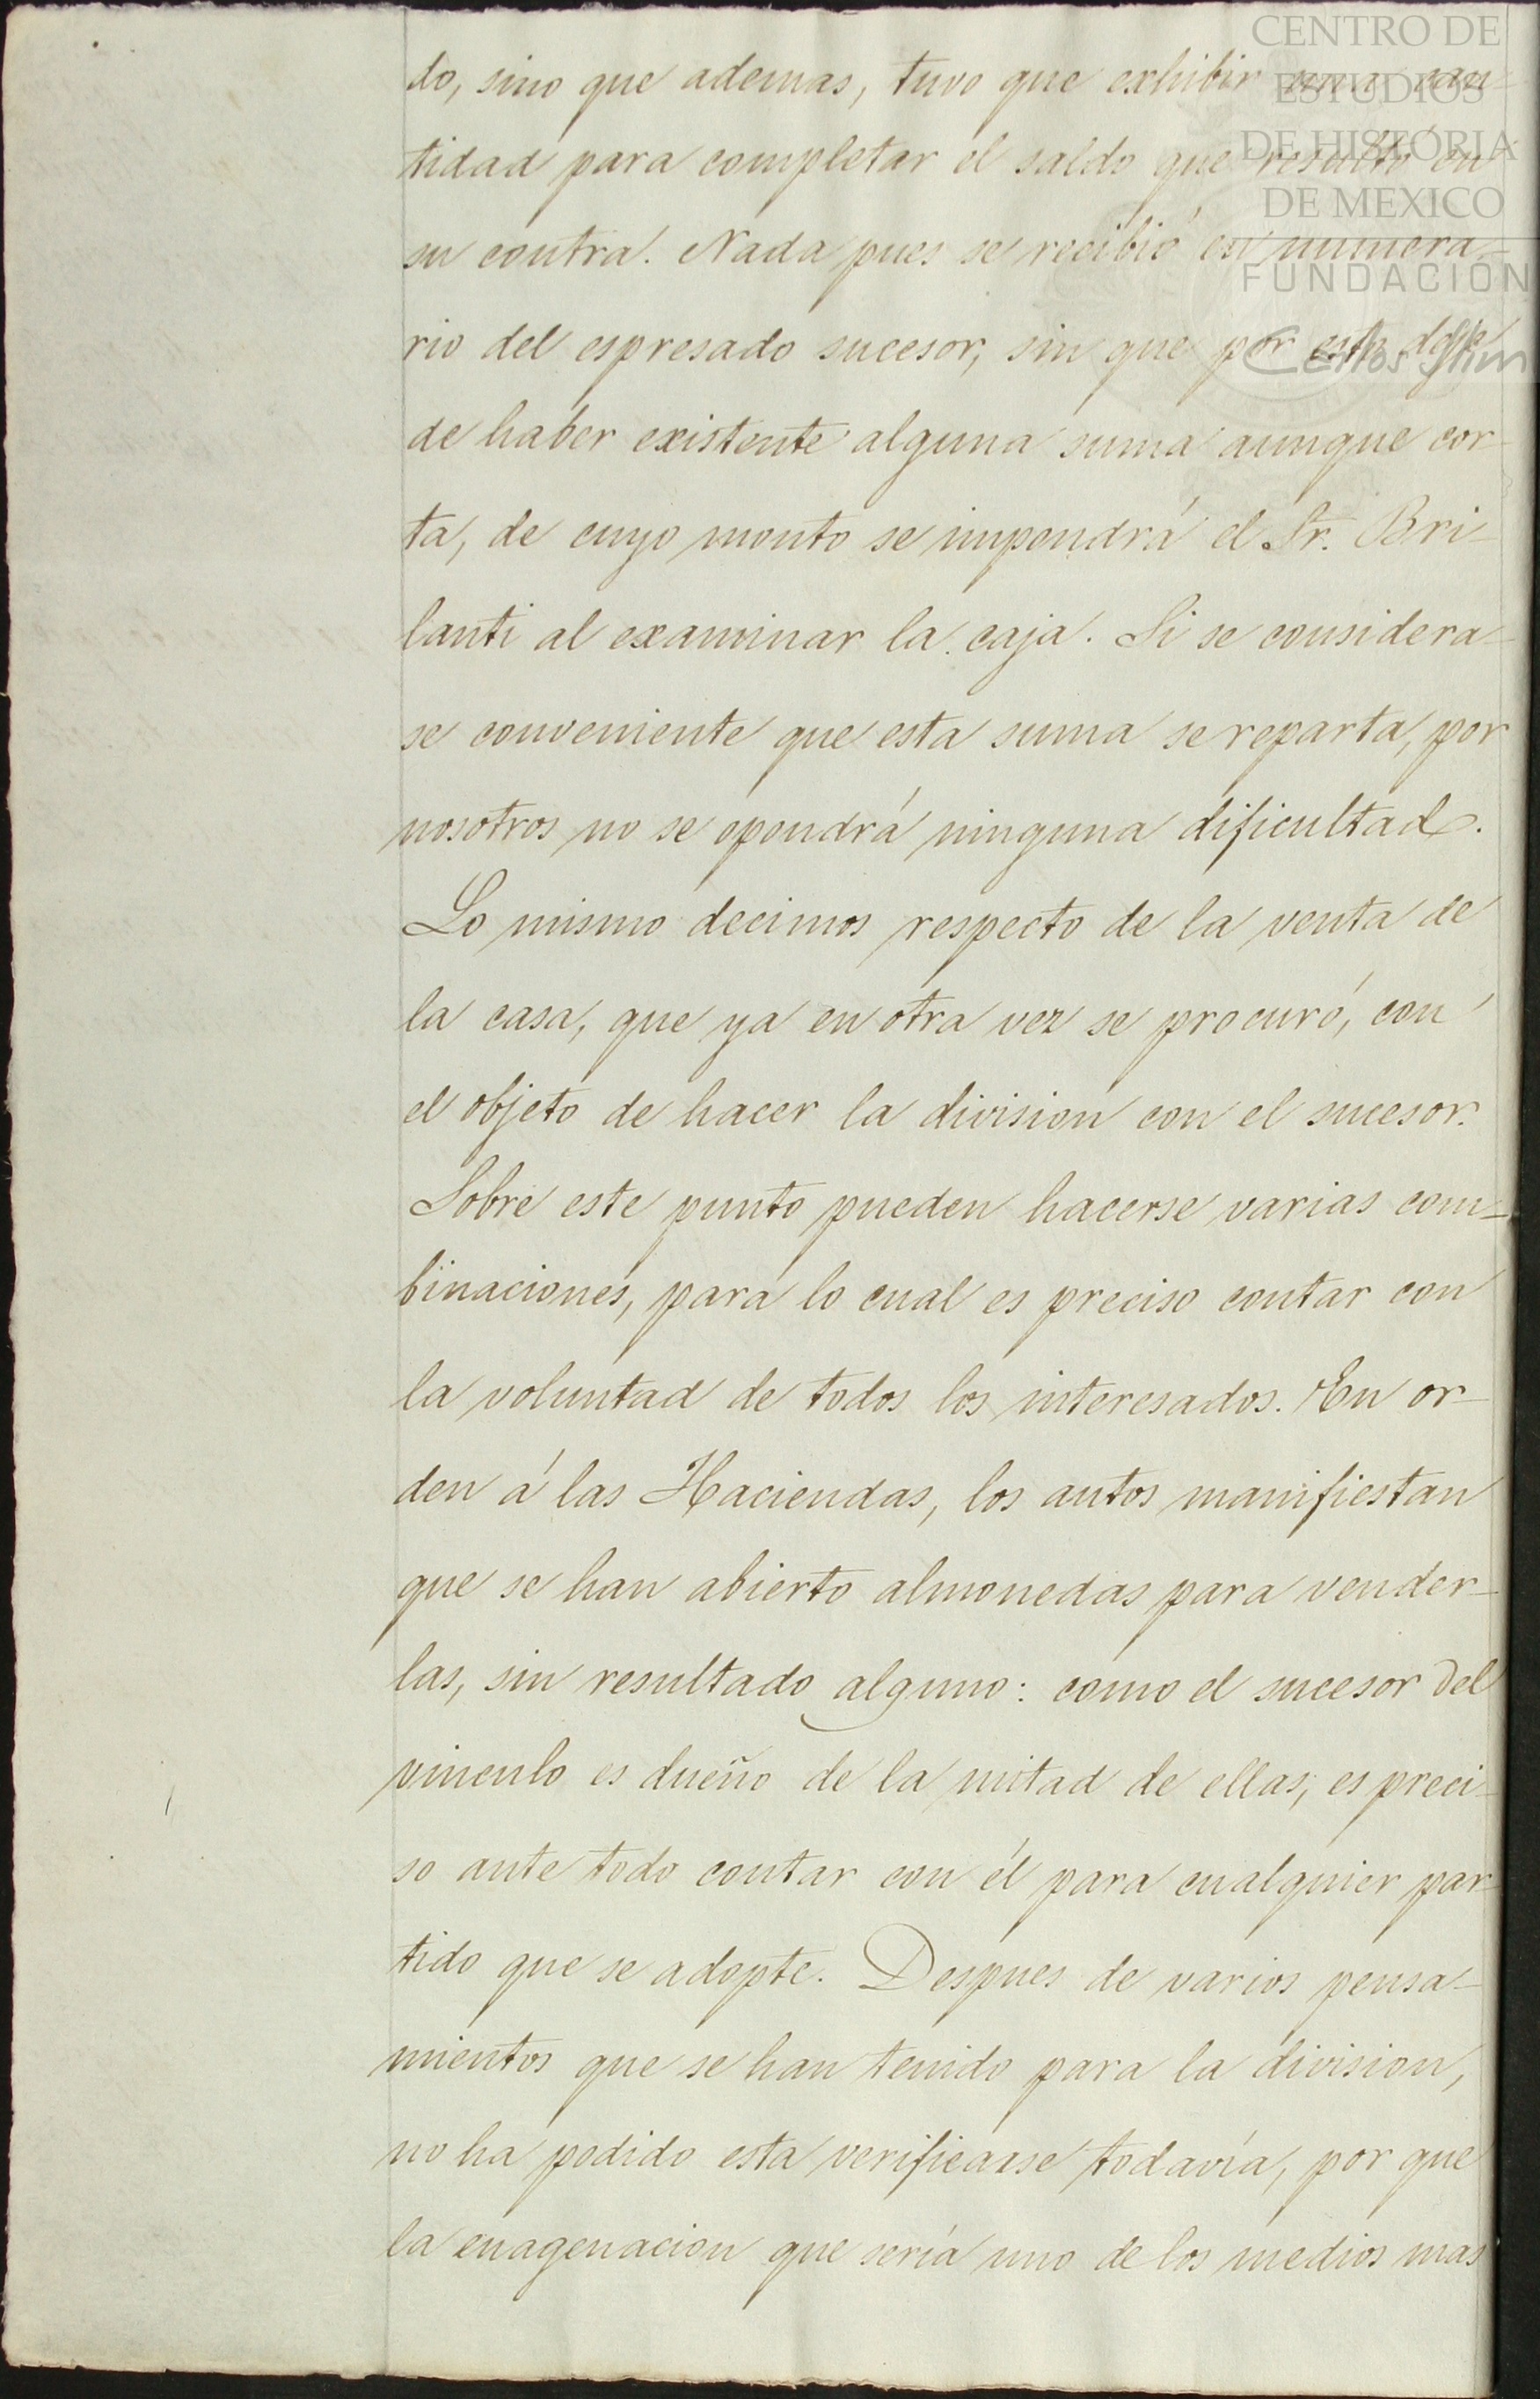 CENTRO DE
ESTUDIOS
DE HISTORIA
DE MEXICO
FUNDACIÓN
Carlos Slim
do, sino que ademas, tuvo que exhibir una can-
tidad para completar el saldo que resultó en
su contra. Nada pues se recibió en numera-
rio del espresado sucesor, sin que por esto deje
de haber existente alguna suma aunque cor-
ta, de cuyo monto se impondrá el Sr. Bri-
lanti al examinar la caja. Si se considera-
se conveniente que esta suma se reparta, por
nosotros no se opondrá ninguna dificultad.
Lo mismo decimos respecto de la venta de
la casa, que ya en otra vez se procuró, con
el objeto de hacer la division con el sucesor.
Sobre este punto pueden hacerse varias com-
binaciones, para lo cual es preciso contar con
la voluntad de todos los interesados. En or-
den á las Haciendas, los autos manifiestan
que se han abierto almonedas para vender-
las, sin resultado alguno: como el sucesor del
vinculo es dueño de la mitad de ellas, es preci-
so ante todo contar con él para cualquier par-
tido que se adopte. Despues de varios pensa-
mientos que se han tenido para la division,
no ha podido esta verificarse todavía, por que
la enagenacion que sería uno de los medios mas